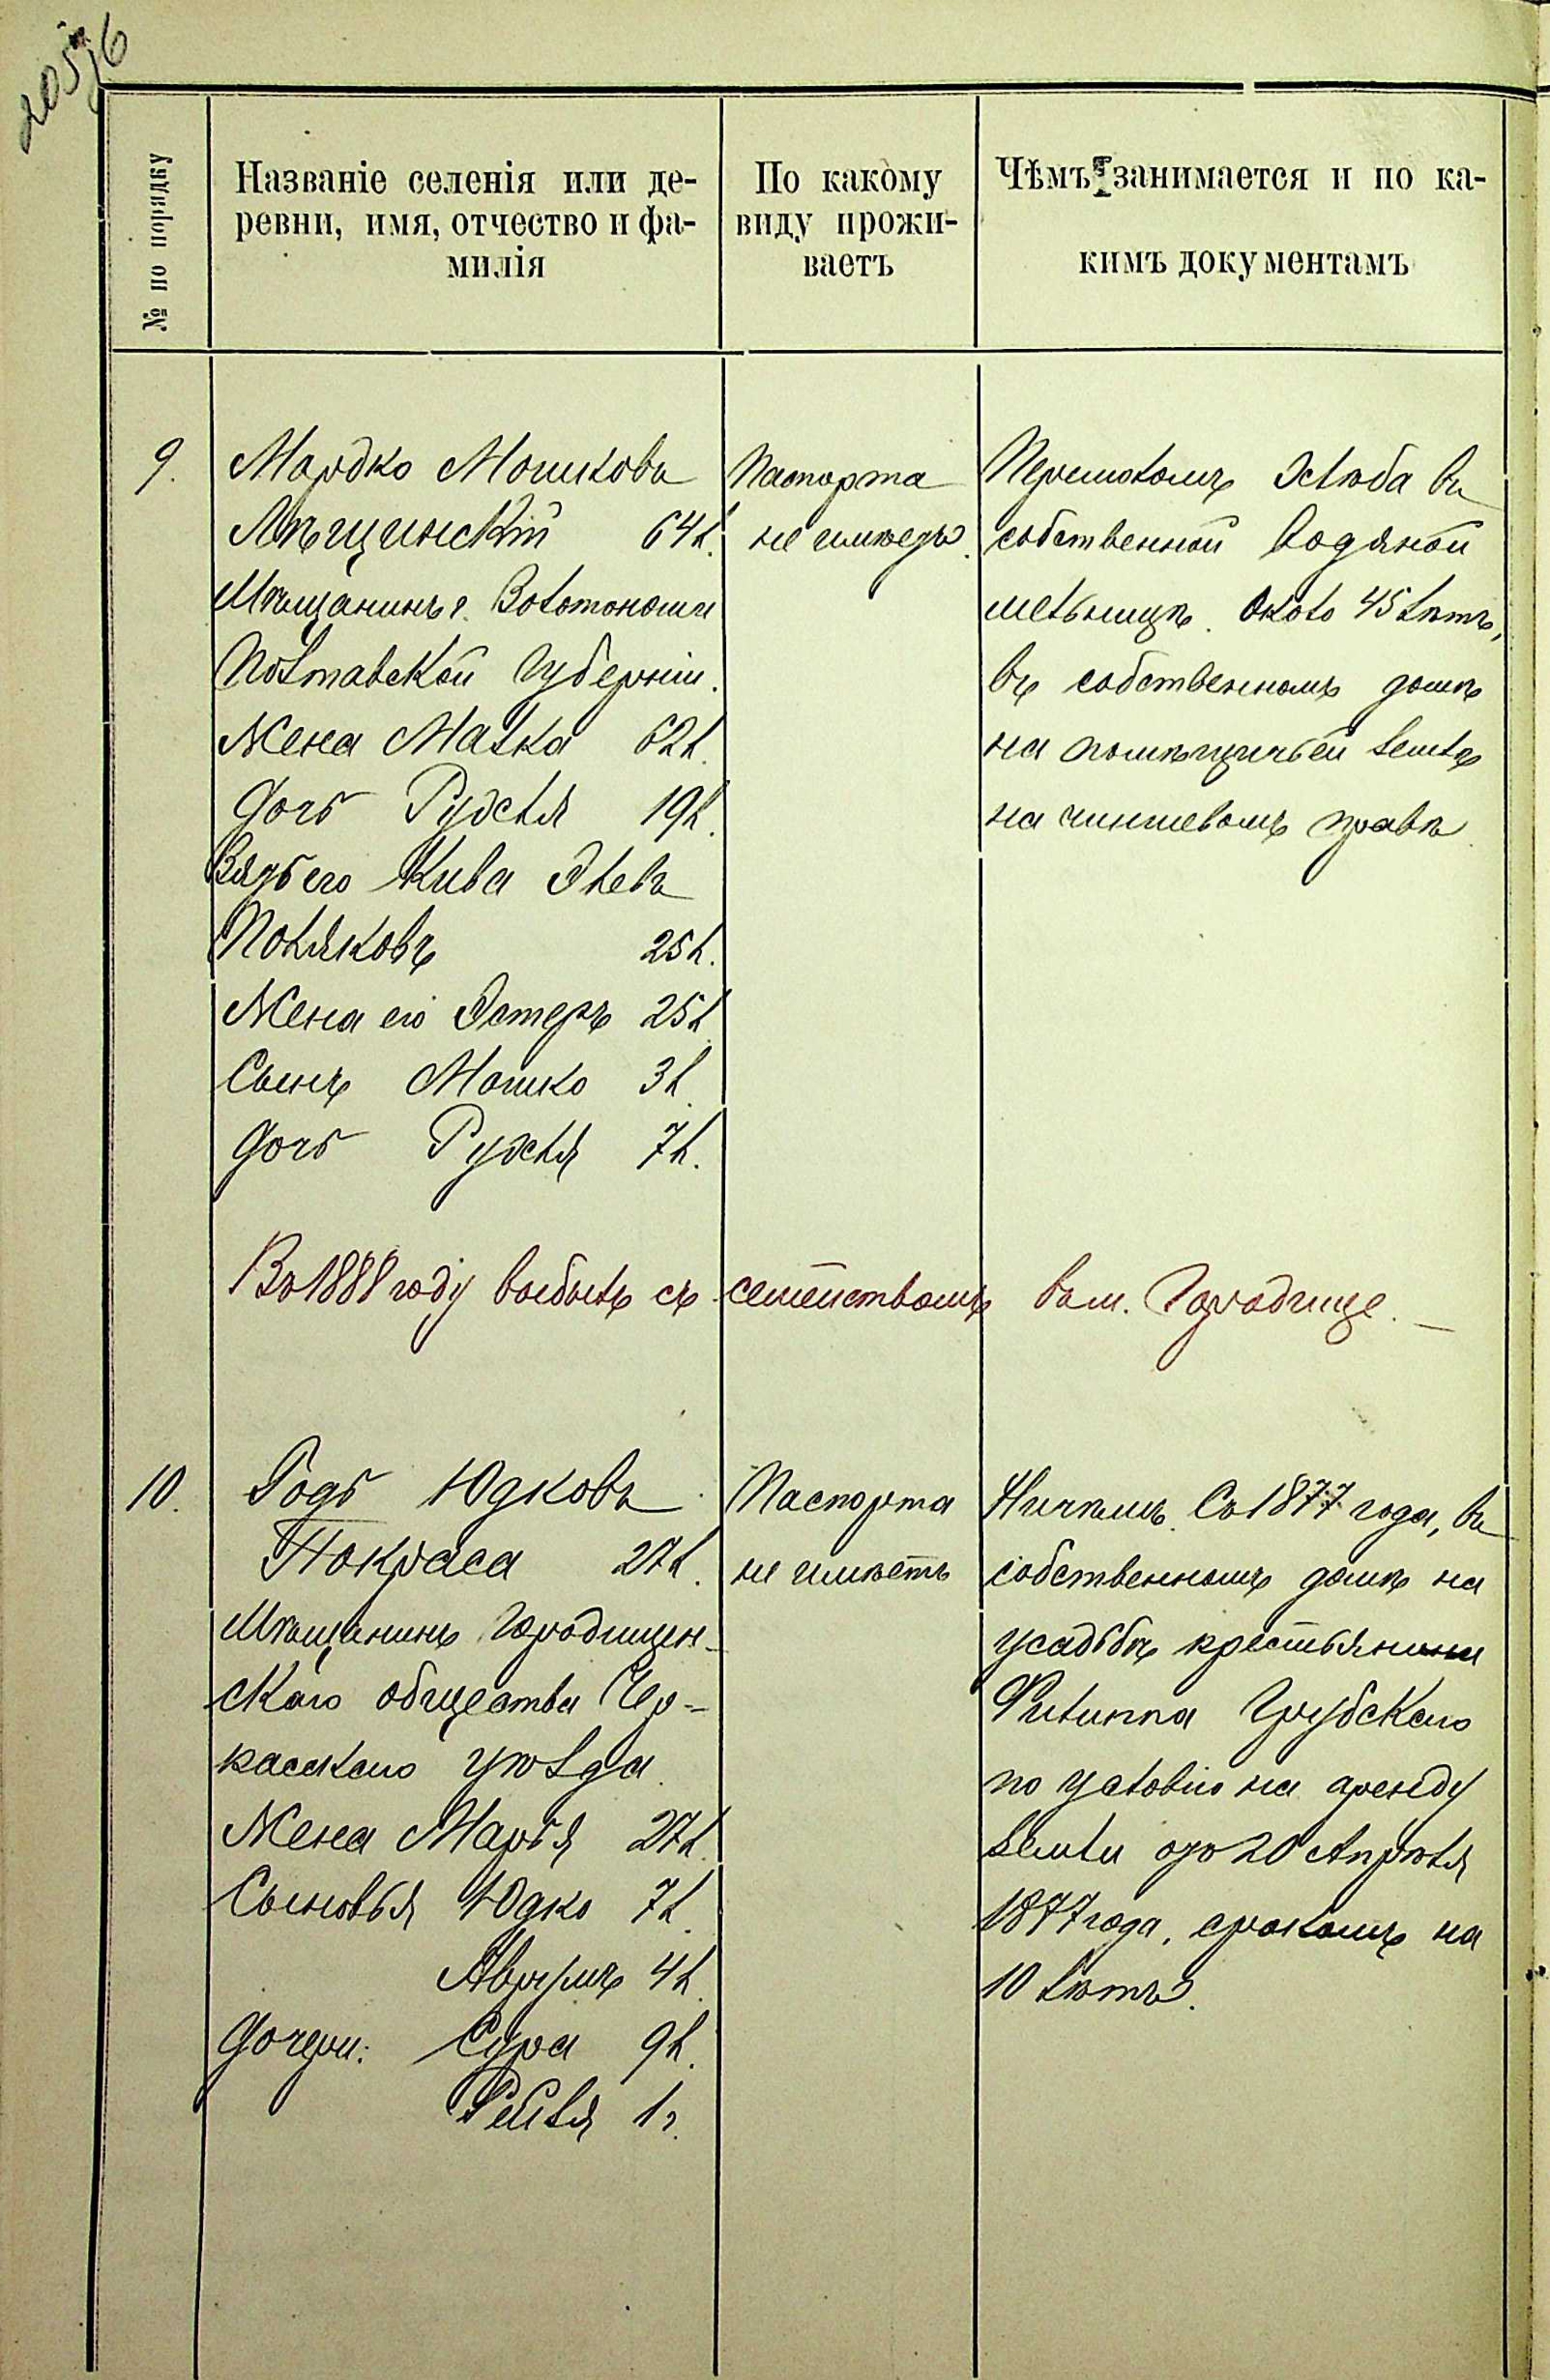 205ч6
№ по порядку
Названіе селенія или де-
ревни, имя, отчество и фа-
милія
По какому
виду прожи-
ваетъ
Чѣмъ занимается и по ка-
кимъ документамъ
9.
Мордко Мошковъ
Лѣщинскій 64 л.
Мѣщанинъ г. Золотоноши
Полтавской Губерніи.
Жена Малка 62 л.
Дочь Рухля 19 л.
Зять его Кива Элевъ
Поляковъ 25 л.
Жена его Эстеръ 25 л.
Сынъ Мошко 3 л.
Дочь Рухля 7 л.
Паспорта
не имѣетъ.
Перемоломъ хлѣба въ
собственной водяной
мельницѣ. Около 45 лѣтъ,
въ собственномъ домѣ
на помѣщичьей землѣ
на чиншевомъ правѣ.
Въ 1888 году выбылъ съ семействомъ въ м. Городище. —
10.
Юдковъ
Покраса 27 л.
Мѣщанинъ Городищен-
скаго общества Чер-
касскаго уѣзда.
Жена Марья 27 л.
Сыновья Юдко 7 л.
Аврумъ 4 л.
Дочери: Сура 9 л.
Рейзя 1 г.
Паспорта
не имѣетъ
Ничѣмъ. Съ 1877 года, въ
собственномъ домѣ на
усадьбѣ крестьянина
Филиппа Грубскаго
по условію на аренду
земли отъ 20 Апрѣля
1877 года, срокомъ на
10 лѣтъ.